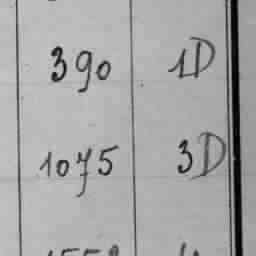 390 1D
1075 3D